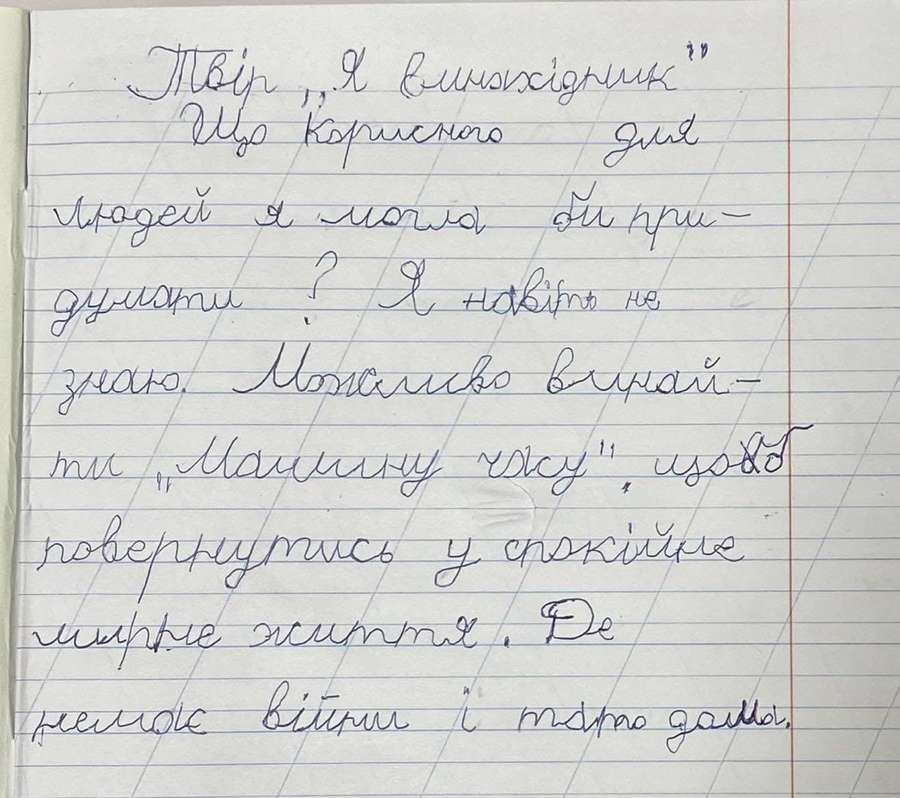 Твір „Я винахідник"
Що корисного для
людей я могла би при-
думати? Я навіть не
знаю. Можливо винай-
ти „Машину часу", щоб
повернутись у спокійне
мирне життя. Де
немає війни і тато дома.